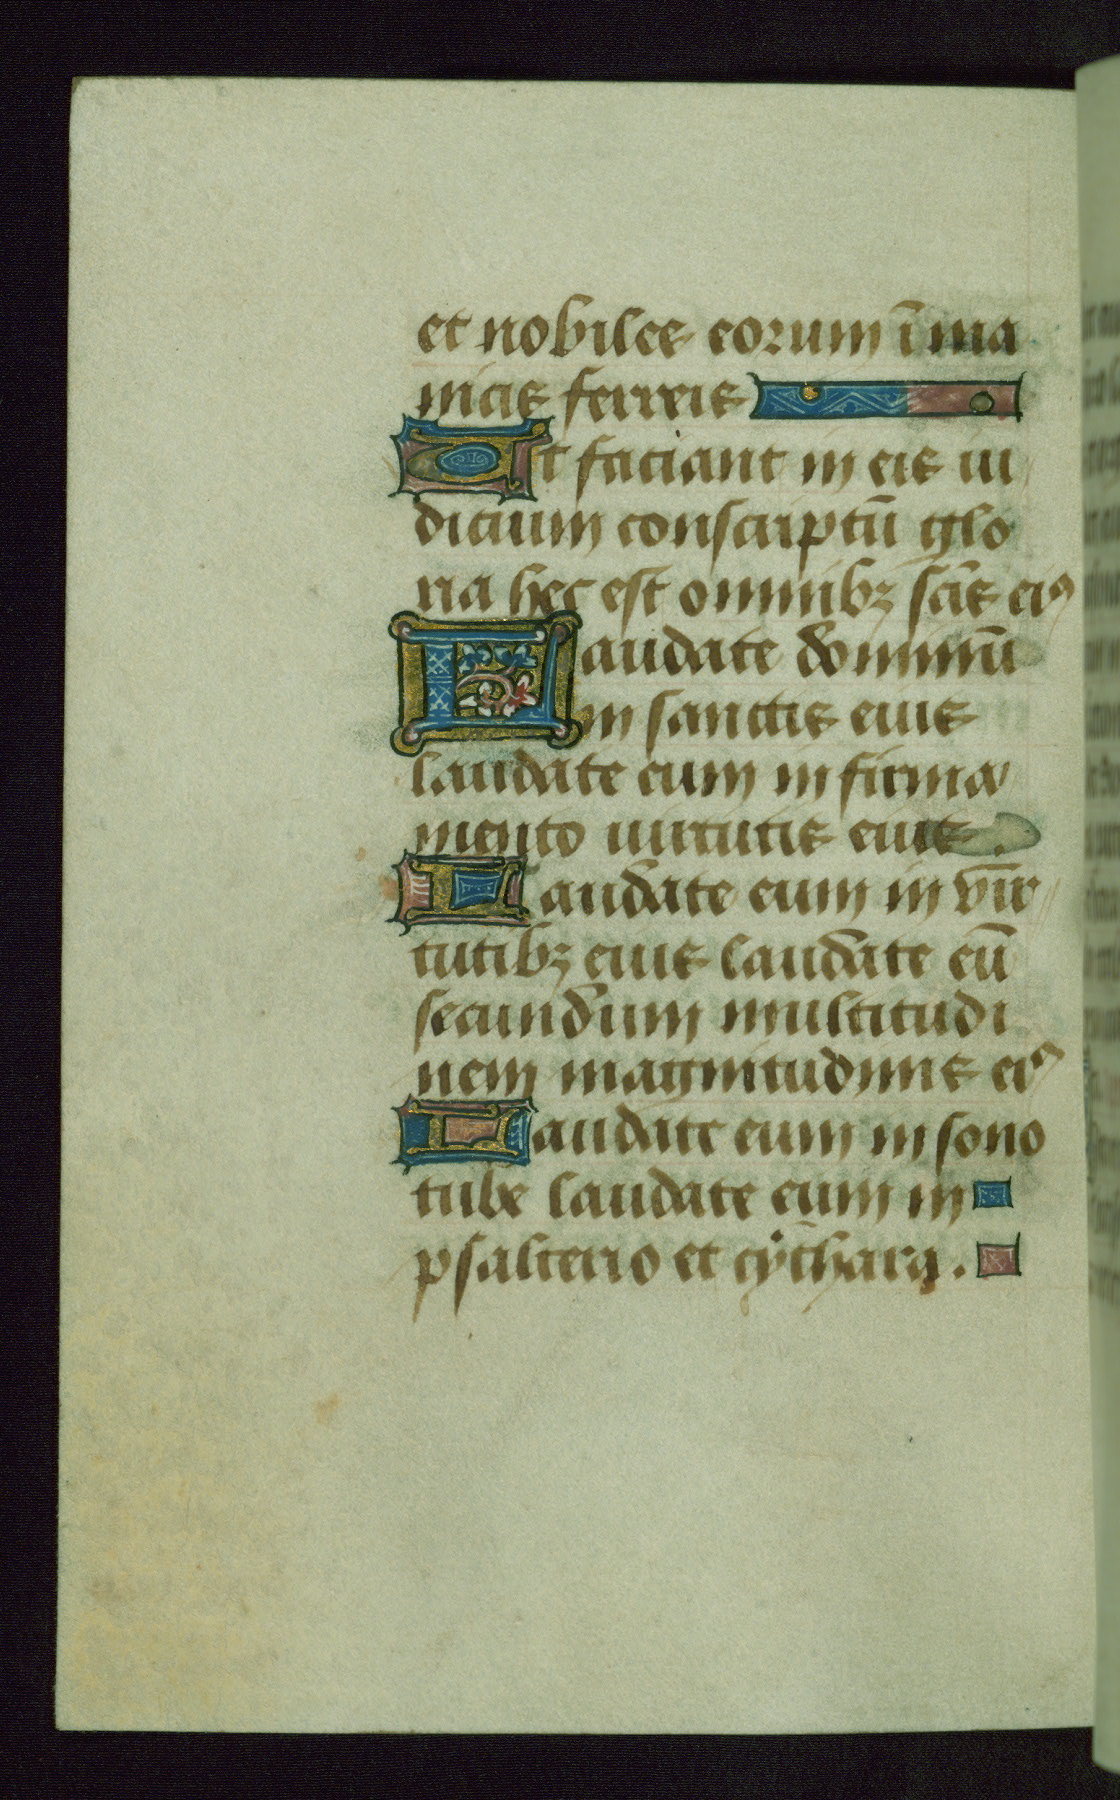 et nobiles eorum ī ma
nicis ferreis
Ut faciant in eis iu
dicium conscriptū glo
ria hec est omnibꝫ scīs eiꝰ
Laudate dominū
in sanctis eius
laudate eum in firma
mento uirtutis eius.
Laudate eum in vīr
tutibꝫ eius laudate eū
secundum multitudi
nem magnitudinis eiꝰ
Laudate eum in sono
tube laudate eum in
psalterio et cythara.